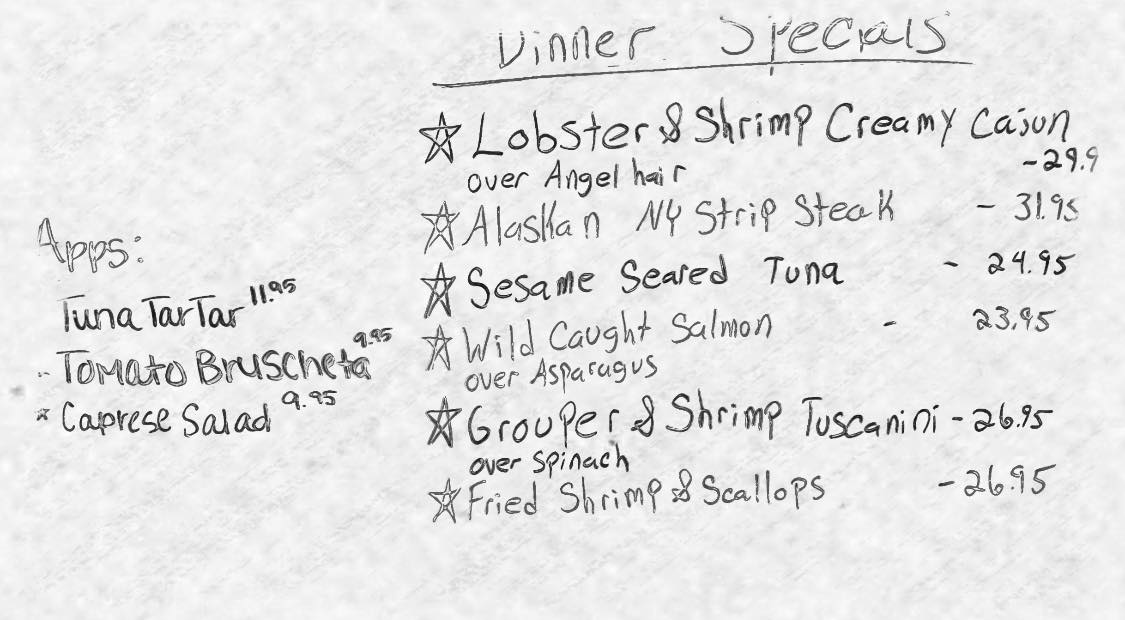 Dinner Specials
☆ Lobster & Shrimp Creamy Cajun
- 29.9
over Angel hair
☆ Alaskan NY Strip Steak - 31.95
☆ Sesame Seared Tuna - 24.95
☆ Wild Caught Salmon - 23.95
over Asparagus
☆ Grouper & Shrimp Tuscanini - 26.95
over spinach
☆ Fried Shrimp & Scallops - 26.95
Apps:
Tuna TarTar 11.95
- Tomato Bruscheta 9.95
* Caprese Salad 9.95